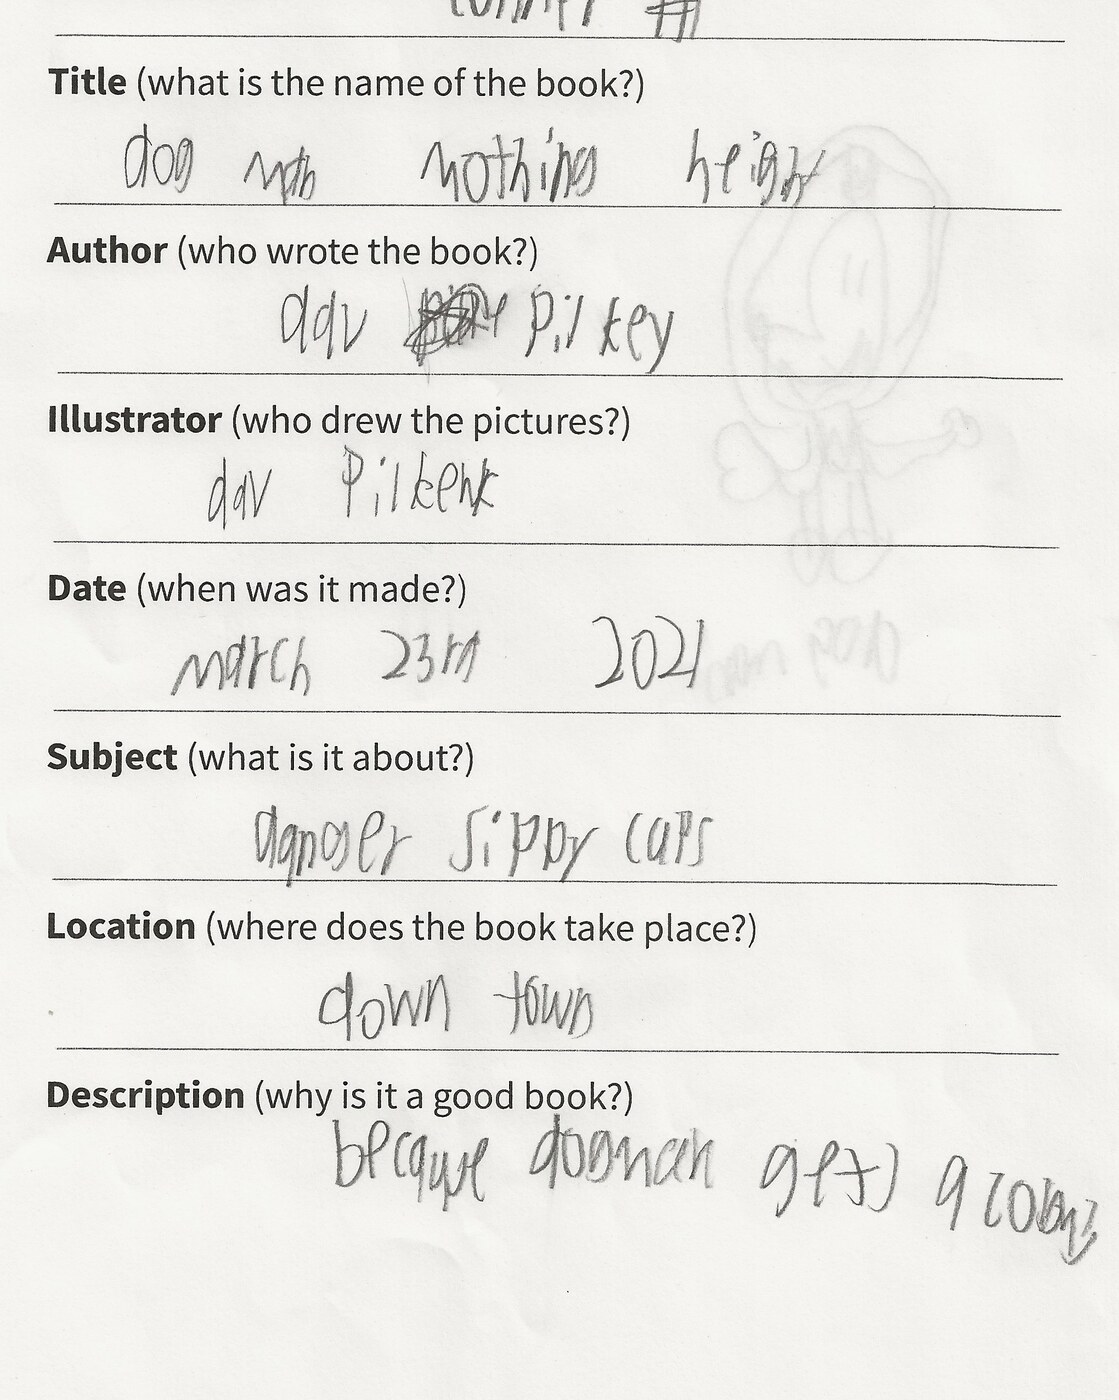 Title (what is the name of the book?)
dog mn nothing height
Author (who wrote the book?)
dav Pilkey
Illustrator (who drew the pictures?)
dav Pilkent
Date (when was it made?)
march 23rd 2021
Subject (what is it about?)
danger sippy cups
Location (where does the book take place?)
down town
Description (why is it a good book?)
becquse dogman gets a